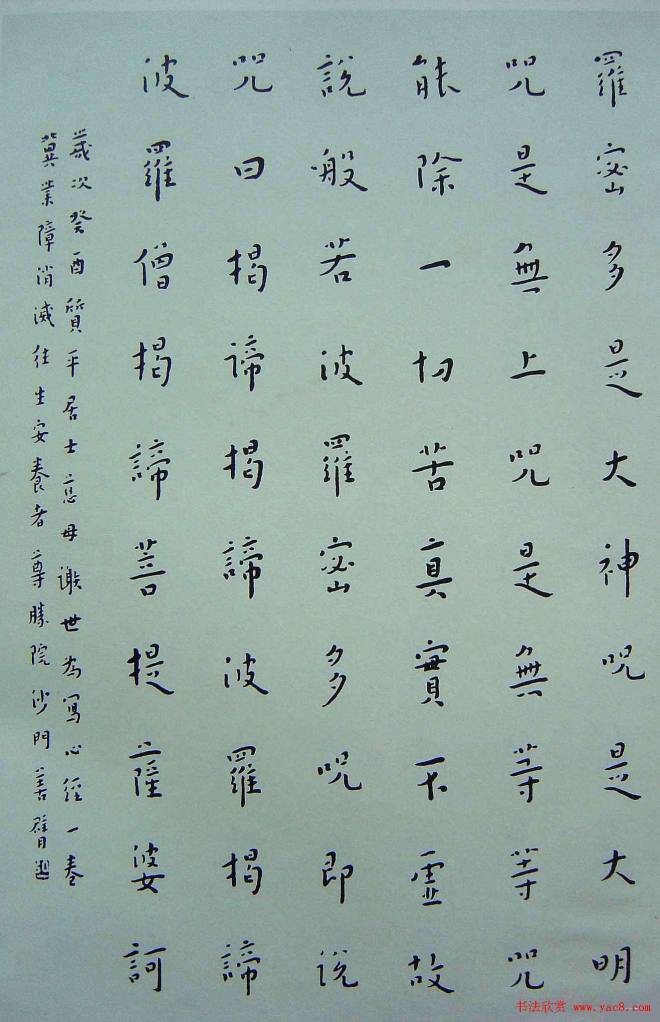 羅密多是大神呪是大明
咒是無上咒是無等等咒
能除一切苦真實不虛故
說般若波羅密多呪即說
咒曰揭諦揭諦波羅揭諦
波羅僧揭諦菩提薩婆訶
歲次癸酉質平居士慈母謝世為寫心經一卷
冀業障消滅往生安養者尊勝院沙門善臂
书法欣赏 www.yac8.com